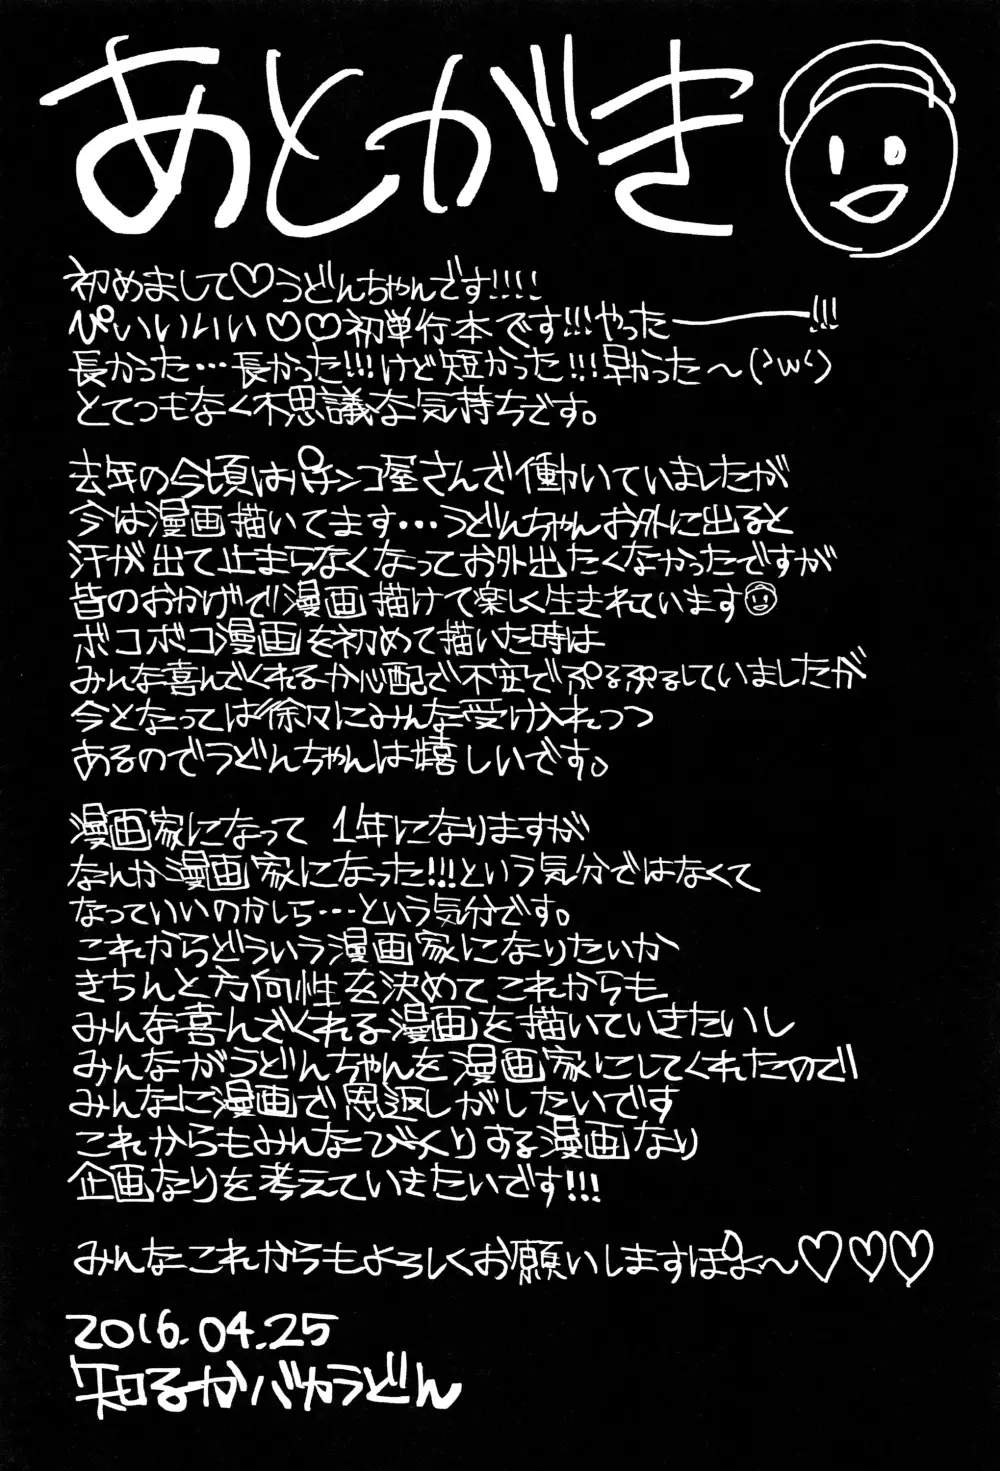 あとがき
初めまして♡うどんちゃんです!!!!
ぴぃいいいい♡♡初単行本です!!!やったー!!!
長かった…長かった!!!けど短かった!!!早かった〜(>w<)
とてつもなく不思議な気持ちです。
去年の今頃はパチンコ屋さんで働いていましたが
今は漫画描いてます…うどんちゃんお外に出ると
汗が出て止まらなくなってお外出たくなかったですが
皆のおかげで漫画描けて楽しく生きれています
ボコボコ漫画を初めて描いた時は
みんな喜んでくれるか心配で不安でぷるぷるしていましたが
今となっては徐々にみんな受け入れつつ
あるのでうどんちゃんは嬉しいです。
漫画家になって 1年になりますが
なんか漫画家になった!!!という気分ではなくて
なっていいのかしら…という気分です。
これからどういう漫画家になりたいか
きちんと方向性を決めてこれからも
みんな喜んでくれる漫画を描いていきたいし
みんながうどんちゃんを漫画家にしてくれたので
みんなに漫画で恩返しがしたいです
これからもみんなびっくりする漫画なり
企画なりを考えていきたいです!!!
みんなこれからもよろしくお願いしますぽよ〜♡♡♡
2016.04.25
知るかバカうどん